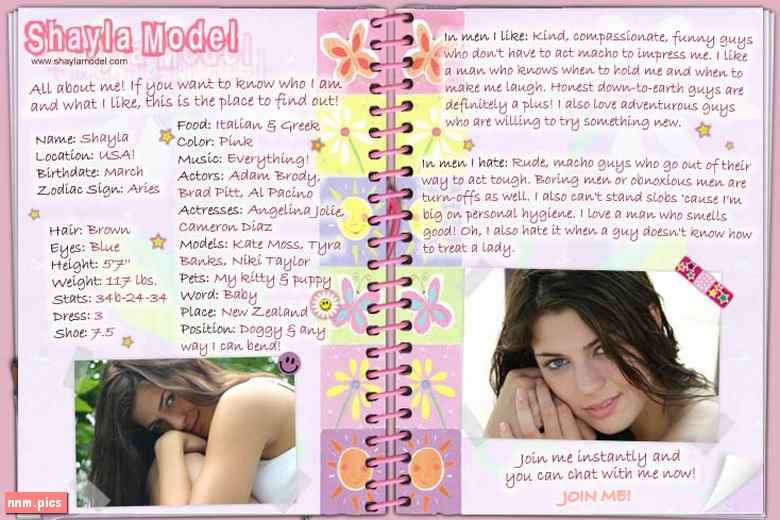 Shayla Model
www.shaylamodel.com
All about me! If you want to know who I am
and what I like, this is the place to find out!
Name: Shayla
Location: USA!
Birthdate: March
Zodiac Sign: Aries
Hair: Brown
Eyes: Blue
Height: 5'7"
Weight: 117 lbs.
Stats: 34b-24-34
Dress: 3
Shoe: 7.5
Food: Italian & Greek
Color: Pink
Music: Everything!
Actors: Adam Brody,
Brad Pitt, Al Pacino
Actresses: Angelina Jolie,
Cameron Diaz
Models: Kate Moss, Tyra
Banks, Niki Taylor
Pets: My kitty & puppy
Word: Baby
Place: New Zealand
Position: Doggy & any
way I can bend!
In men I like: Kind, compassionate, funny guys
who don't have to act macho to impress me. I like
a man who knows when to hold me and when to
make me laugh. Honest down-to-earth guys are
definitely a plus! I also love adventurous guys
who are willing to try something new.
In men I hate: Rude, macho guys who go out of their
way to act tough. Boring men or obnoxious men are
turn-offs as well. I also can't stand slobs 'cause I'm
big on personal hygiene. I love a man who smells
good! Oh, I also hate it when a guy doesn't know how
to treat a lady.
Join me instantly and
you can chat with me now!
JOIN ME!
nnm.pics